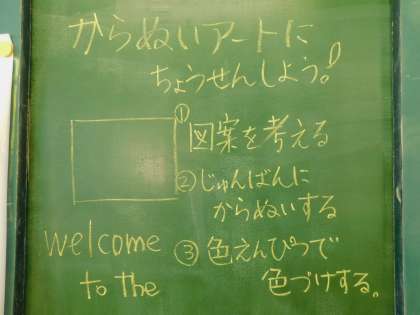 からぬいアートに
ちょうせんしよう!
① 図案を考える
② じゅんばんに
からぬいする
③ 色えんぴつで
色づけする。
welcome
to the